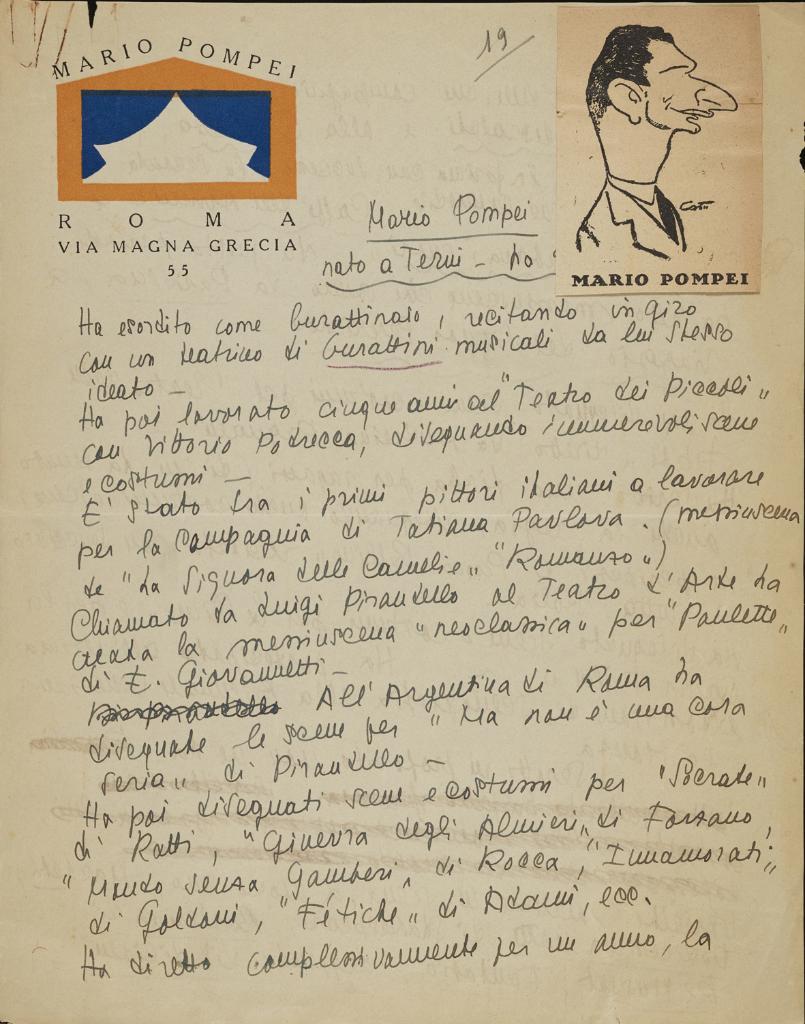 MARIO POMPEI
ROMA
VIA MAGNA GRECIA
55
19
MARIO POMPEI
Mario Pompei
nato a Terni - ho
Ha esordito come burattinaio, recitando in giro
con un teatrino di burattini musicali da lui stesso
ideato -
Ha poi lavorato cinque anni al "Teatro dei Piccoli"
con Vittorio Podrecca, disegnando innumerevoli scene
e costumi -
E' stato fra i primi pittori italiani a lavorare
per la Compagnia di Tatiana Pavlova. (messinscena
de "La Signora delle Camelie" "Romanzo")
Chiamato da Luigi Pirandello al Teatro d'Arte ha
creata la messinscena "neoclassica" per "Paulette"
di E. Giovannetti -
All'Argentina di Roma ha
disegnate le scene per "Ma non è una cosa
seria" di Pirandello -
Ha poi disegnati scene e costumi per "Socrate"
di Ratti, "Ginevra degli Almieri" di Forzano,
"Mondo senza Gamberi" di Rocca, "Innamorati"
di Goldoni, "Fétiche" di Adami, ecc.
Ha diretto complessivamente per un anno, la